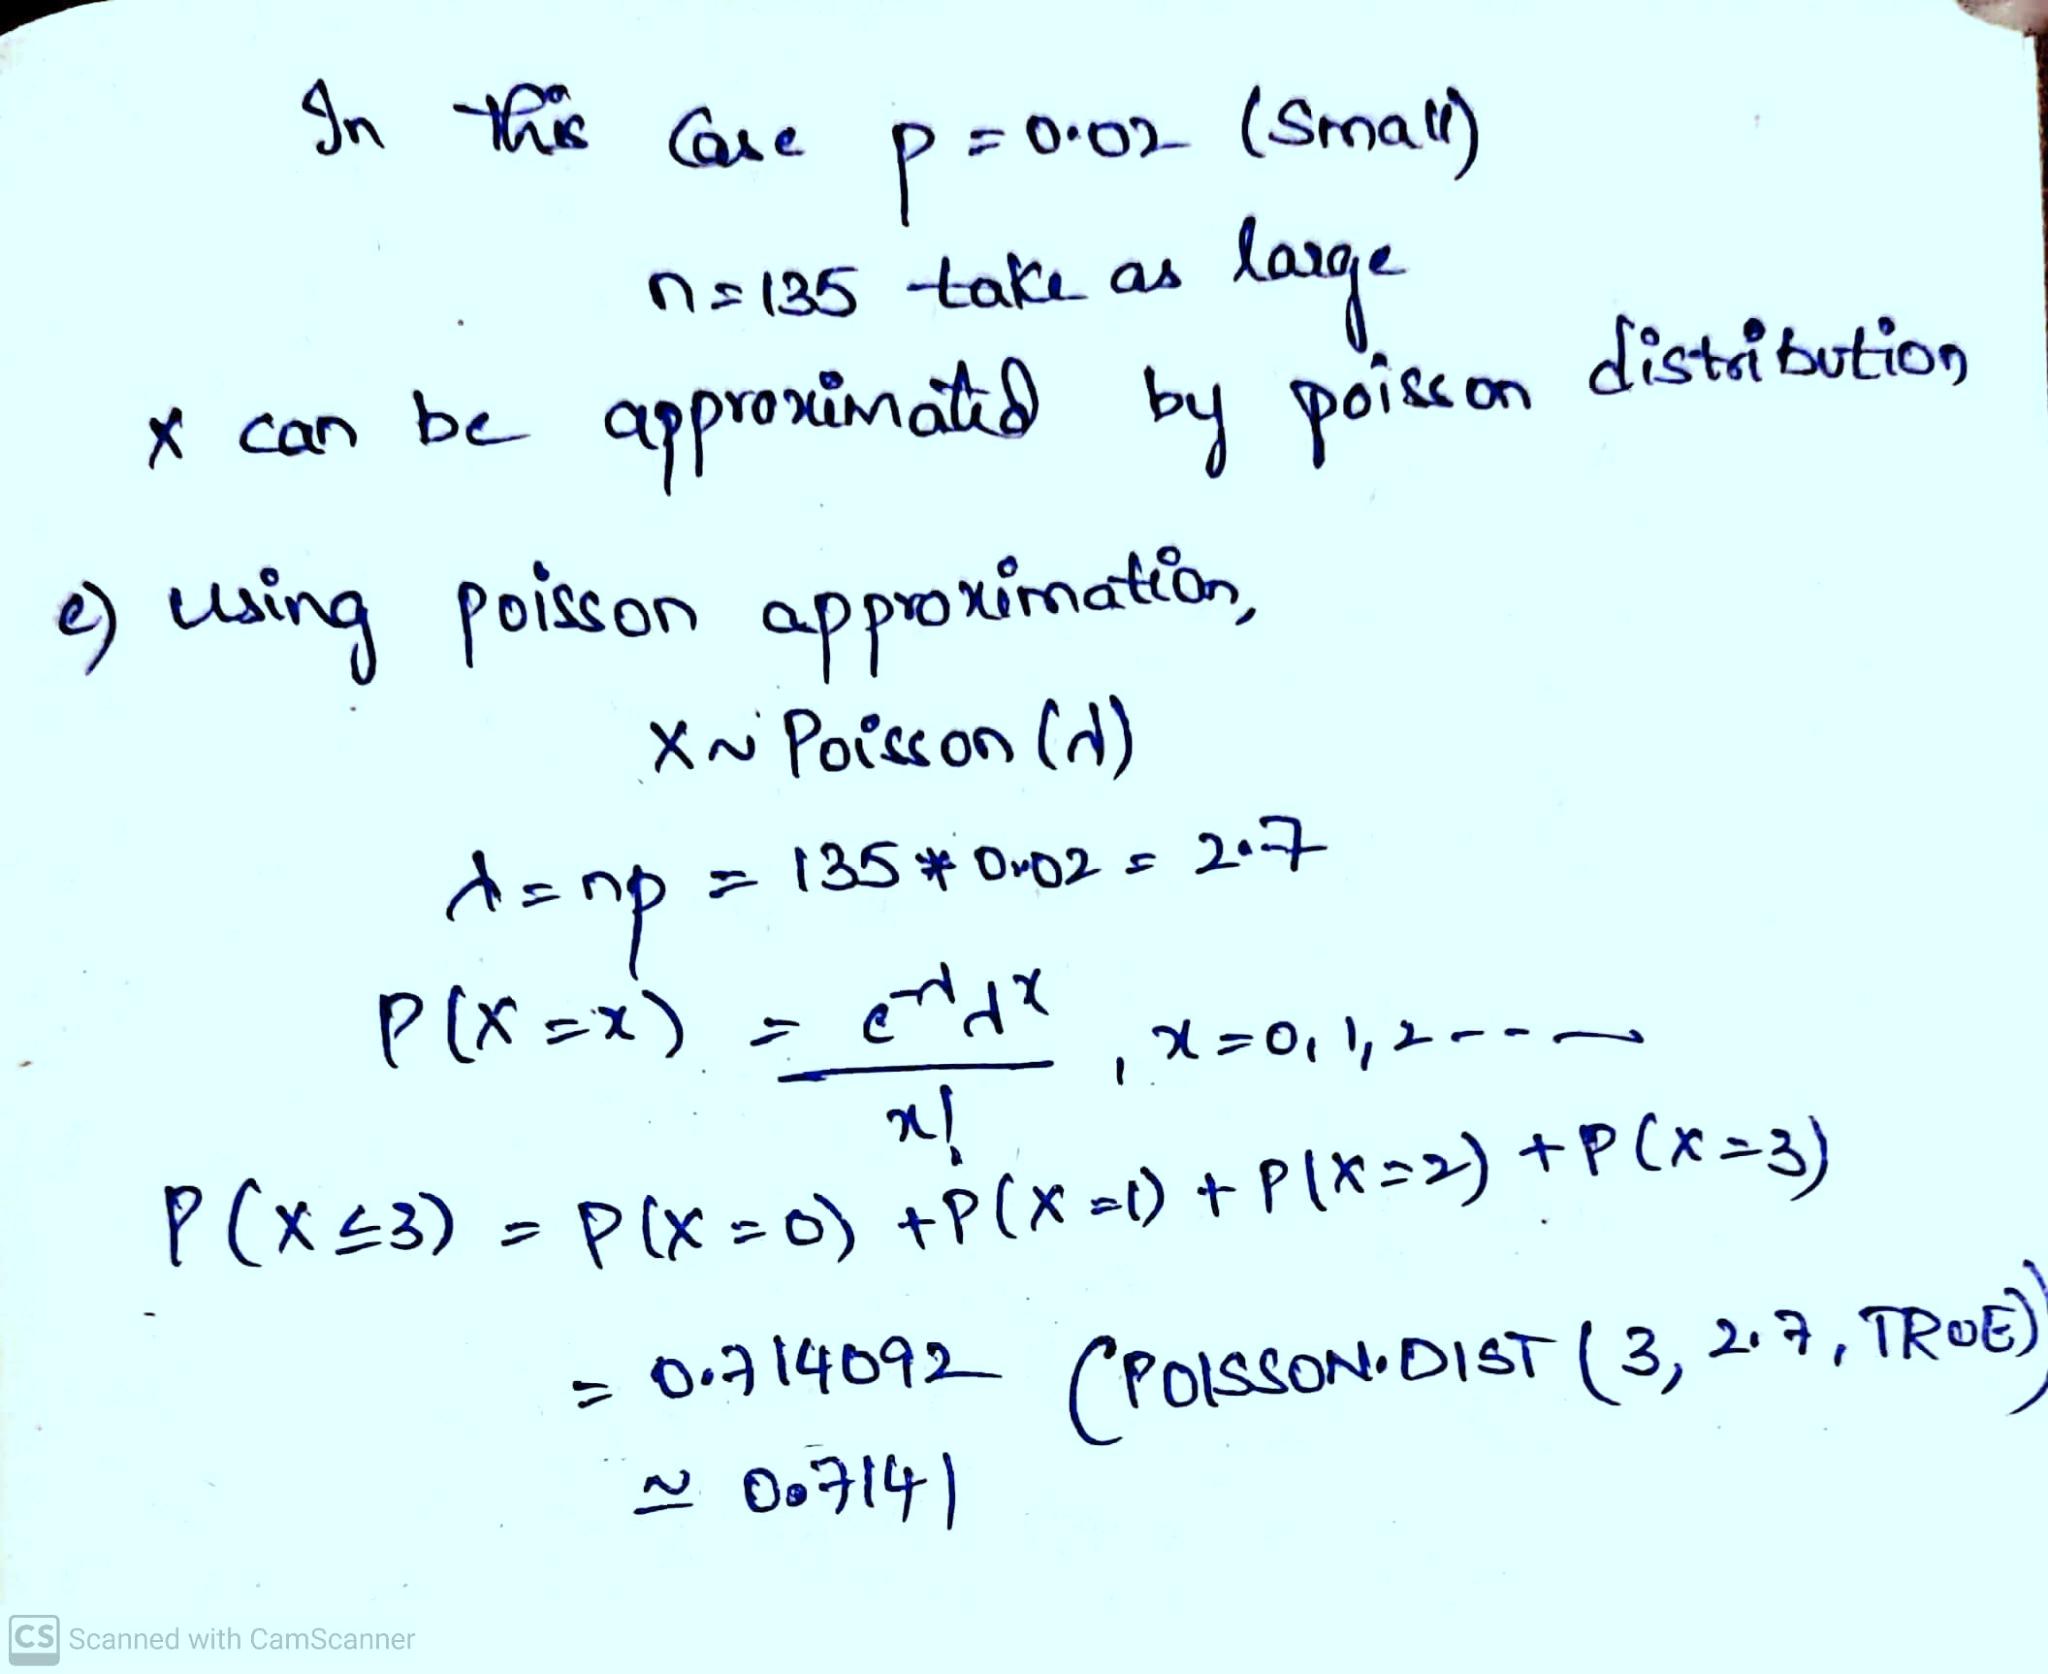 In this Case p = 0.02 (Small)
n = 135 take as large
X can be approximated by poisson distribution
e) using poisson approximation,
X ~ Poisson (λ)
λ = np = 135 * 0.02 = 2.7
P(X = x) = e^-λ λ^x / x! , x = 0, 1, 2 ----
P(X ≤ 3) = P(X = 0) + P(X = 1) + P(X = 2) + P(X = 3)
= 0.714092 (POISSON.DIST (3, 2.7, TRUE))
≃ 0.7141
CS Scanned with CamScanner